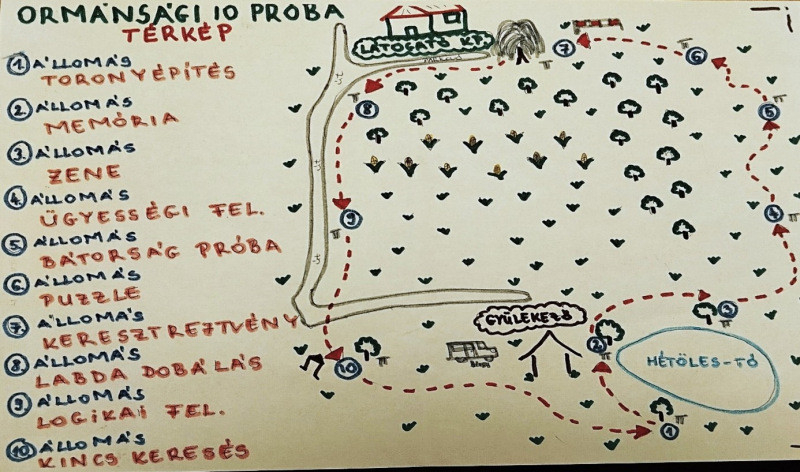 ORMÁNSÁGI 10 PRÓBA
TÉRKÉP
1 ÁLLOMÁS
TORONYÉPÍTÉS
2. ÁLLOMÁS
MEMÓRIA
3. ÁLLOMÁS
ZENE
4. ÁLLOMÁS
ÜGYESSÉGI FEL.
5. ÁLLOMÁS
BÁTORSÁG PRÓBA
6. ÁLLOMÁS
PUZZLE
7. ÁLLOMÁS
KERESZTREJTVÉNY
8. ÁLLOMÁS
LABDA DOBÁLÁS
9. ÁLLOMÁS
LOGIKAI FEL.
10 ÁLLOMÁS
KINCS KERESÉS
LÁTOGATÓ KP.
7
6
8
5
ÚT
ÚT
9
4
ÚT
GYÜLEKEZŐ
3
2
HÉTÖLES-TÓ
10
1